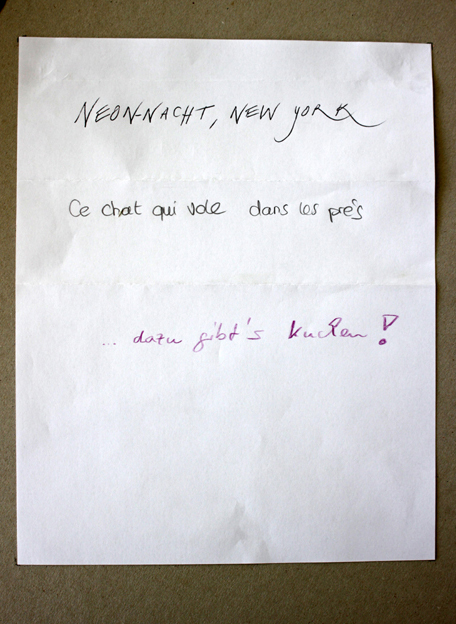 NEON-NACHT, NEW YORK
Ce chat qui vole dans les prés
... dazu gibt's Kuchen!